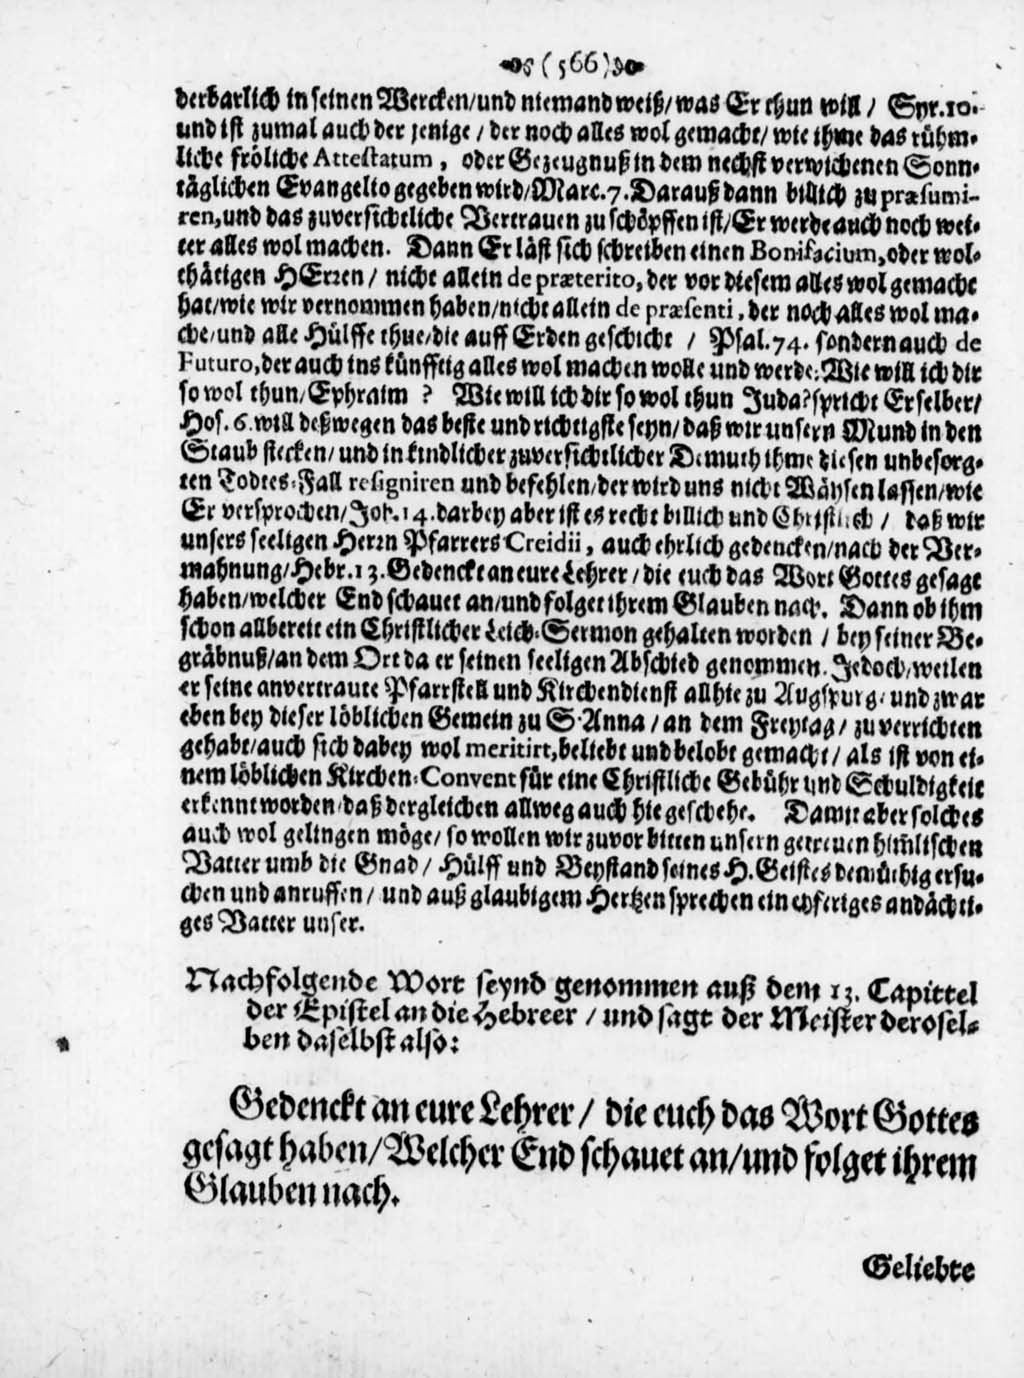 (566)
derbarlich in seinen Wercken/und niemand weiß/was Er thun will / Syr.10.
und ist zumal auch der jenige / der noch alles wol gemacht/ wie ihme das rühm-
liche fröliche Attestatum, oder Gezeugnuß in dem nechst verwichenen Sonn-
täglichen Evangelio gegeben wird/Marc.7.Darauß dann billich zu præsumi-
ren,und das zuversichtliche Vertrauen zu schöpffen ist/Er werde auch noch wei-
ter alles wol machen. Dann Er läst sich schreiben einen Bonifacium,oder wol-
thätigen HErren / nicht allein de præterito, der vor diesem alles wol gemacht
hat/wie wir vernommen haben/nicht allein de præsenti, der noch alles wol ma-
che/und alle Hülffe thue/die auff Erden geschicht / Psal.74. sondern auch de
Futuro,der auch ins künfftig alles wol machen wolle und werde:Wie will ich dir
so wol thun/Ephraim ? Wie will ich dir so wol thun Juda?spricht Er selber/
Hos.6.will deßwegen das beste und richtigste seyn/daß wir unsern Mund in den
Staub stecken/und in kindlicher zuversichtlicher Demuth ihme diesen unbesorg-
ten Todtes-Fall resigniren und befehlen/der wird uns nicht Wäysen lassen/wie
Er versprochen/Joh.14.darbey aber ist es recht billich und Christlich / daß wir
unsers seeligen Herrn Pfarrers Creidii, auch ehrlich gedencken/nach der Ver-
mahnung/Hebr.13.Gedenckt an eure Lehrer / die euch das Wort Gottes gesagt
haben/welcher End schauet an/und folget ihrem Glauben nach. Dann ob ihm
schon allbereit ein Christlicher Leich-Sermon gehalten worden / bey seiner Be-
gräbnuß/an dem Ort da er seinen seeligen Abschied genommen. Jedoch/weilen
er seine anvertraute Pfarrstell und Kirchendienst allhie zu Augspurg/ und zwar
eben bey dieser löblichen Gemein zu S.Anna / an dem Freytag / zu verrichten
gehabt/auch sich dabey wol meritirt,beliebt und belobt gemacht / als ist von ei-
nem löblichen Kirchen-Convent für eine Christliche Gebühr und Schuldigkeit
erkennt worden/daß dergleichen allweg auch hie geschehe. Damit aber solches
auch wol gelingen möge/ so wollen wir zuvor bitten unsern getreuen him̃lischen
Vatter umb die Gnad / Hülff und Beystand seines H.Geistes demüthig ersu-
chen und anruffen / und auß glaubigem Hertzen sprechen ein eyferiges andächti-
ges Vatter unser.
Nachfolgende Wort seynd genommen auß dem 13. Capittel
der Epistel an die Hebreer / und sagt der Meister derosel-
ben daselbst also:
Gedenckt an eure Lehrer / die euch das Wort Gottes
gesagt haben/Welcher End schauet an/und folget ihrem
Glauben nach.
Geliebte